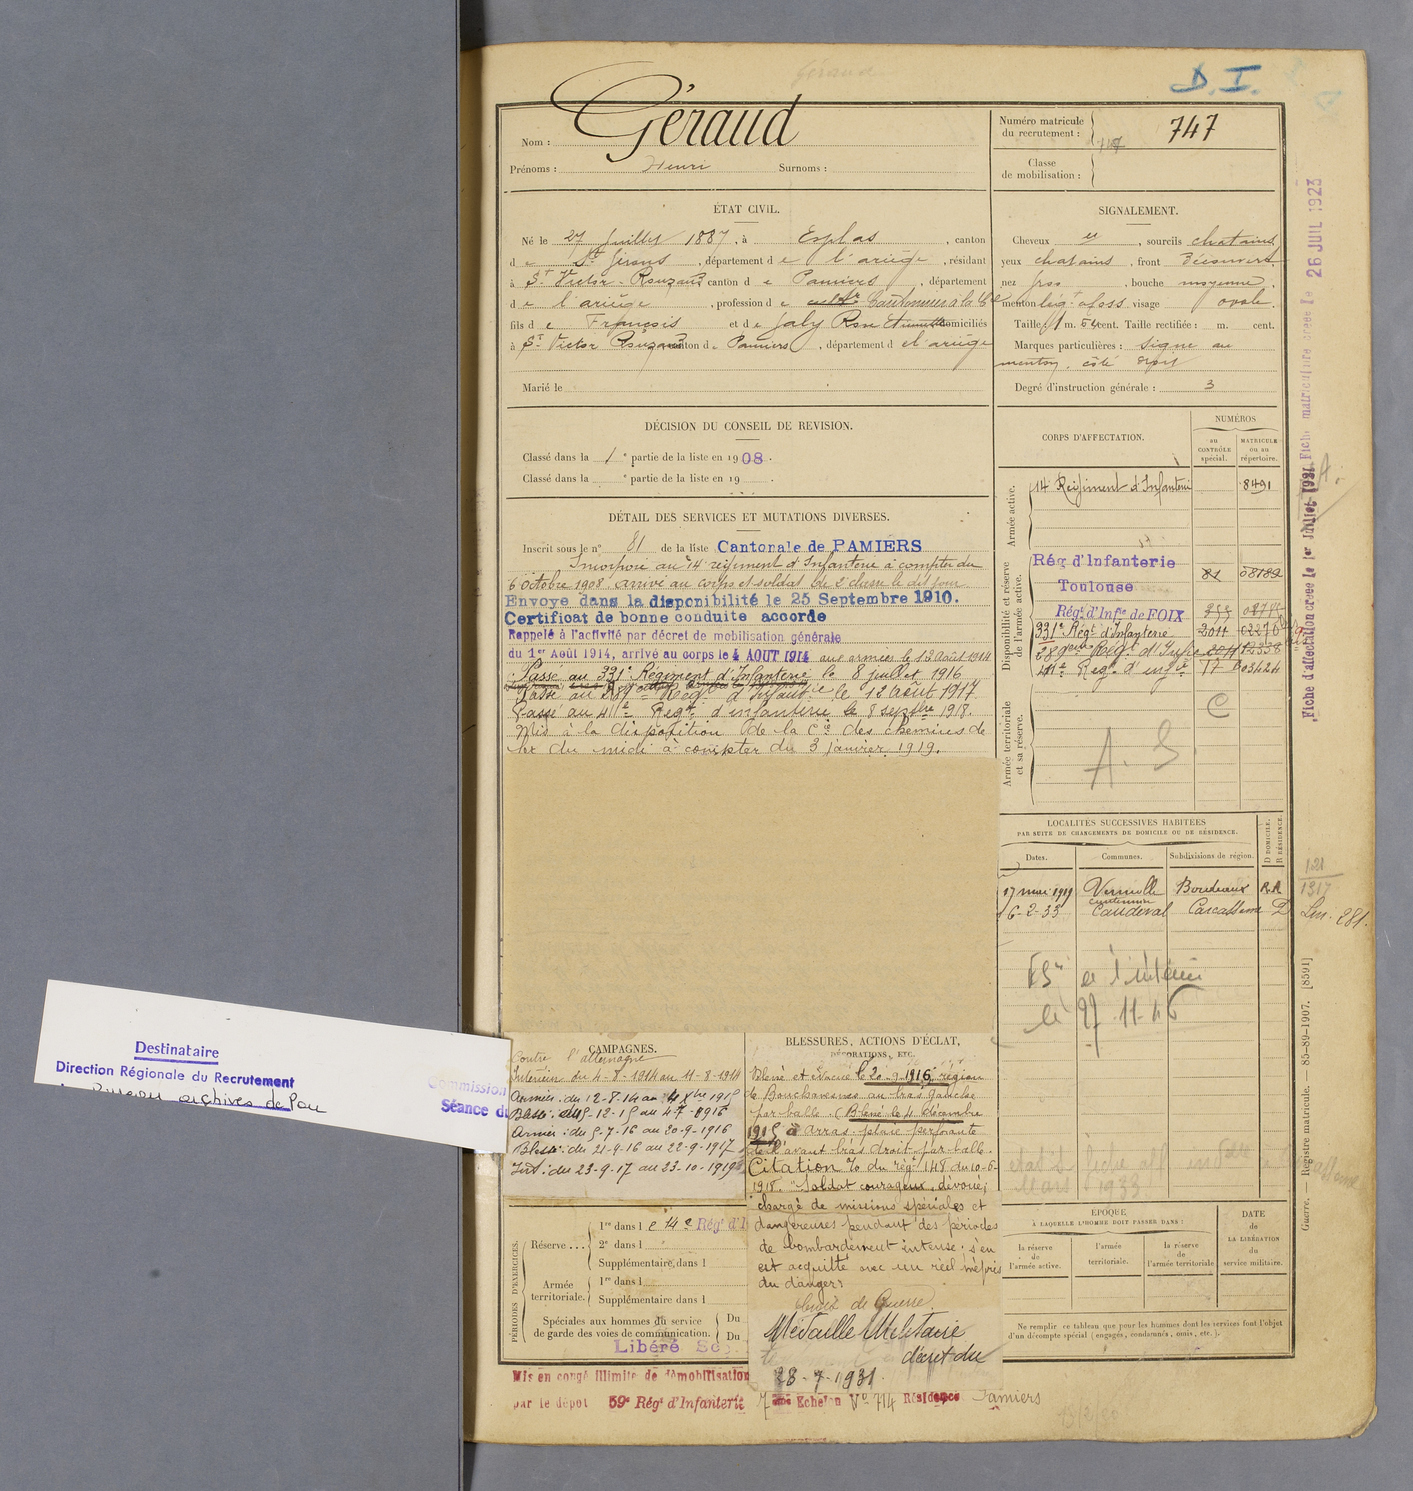 D. I.
Nom : Géraud
Prénoms : Henri Surnoms :
Numéro matricule du recrutement : 747
Classe de mobilisation :
ÉTAT CIVIL.
Né le 27 Juillet 1887, à Esplas, canton
de St Girons, département de l'ariège, résidant
à St Victor-Rouzaud canton de Pamiers, département
de l'ariège, profession de Cantonnier à la Cie
fils de François et de Jaly Rose domiciliés
à St Victor Rouzaud canton de Pamiers, département de l'ariège
Marié le
SIGNALEMENT.
Cheveux , sourcils chatains
yeux chatains, front Découvert
nez gros, bouche moyenne,
menton visage ovale.
Taille 1 m. 54 cent. Taille rectifiée : m. cent.
Marques particulières : Signe au
menton, côté droit
Degré d'instruction générale : 3
DÉCISION DU CONSEIL DE REVISION.
Classé dans la 1e partie de la liste en 1908.
Classé dans la e partie de la liste en 19 .
DÉTAIL DES SERVICES ET MUTATIONS DIVERSES.
Inscrit sous le n° 81 de la liste Cantonale de PAMIERS
Incorporé au 14e régiment d'Infanterie à compter du
6 Octobre 1908, arrivé au corps et soldat de 2e classe le dit jour
Envoyé dans la disponibilité le 25 Septembre 1910.
Certificat de bonne conduite accordé
Rappelé à l'activité par décret de mobilisation générale
du 1er Août 1914, arrivé au corps le 4 AOUT 1914 aux armées le 12 Août 1914
Passé au 331e Régiment d'Infanterie le 8 juillet 1916
Passé au 289e Régt d'Infantie le 12 août 1917
Passé au 411e Regt d'infanterie le 8 septbre 1918.
Mis à la disposition de la Cie des chemins de
fer du midi à compter du 3 janvier 1919.
CORPS D'AFFECTATION.
NUMÉROS
au CONTRÔLE spécial.
MATRICULE ou au répertoire.
Armée active.
14 Régiment d'Infanterie 8491
Disponibilité et réserve de l'armée active.
Rég d'Infanterie
Toulouse 81 08189
Régt d'Infie de FOIX
331e Régt d'Infanterie
289eme Régt d'Infie
411e Regt d'infie
Armée territoriale et sa réserve.
C
A. S
LOCALITÉS SUCCESSIVES HABITÉES
PAR SUITE DE CHANGEMENTS DE DOMICILE OU DE RÉSIDENCE.
Dates. Communes. Subdivisions de région. D DOMICILE. R RÉSIDENCE.
17 mai 1919 Verniolle Bordeaux R.R
16-2-33 Caudeval Carcassonne D
le 27-11-46
CAMPAGNES.
Contre l'allemagne
Intérieur du 4-8-1914 au 11-8-1914
Armées : du 12-8-14 au 4 Xbre 1915
Blessé : du 5-12-15 au 4-7-1916
Armées : du 5-7-16 au 20-9-1916
Blessé : du 21-9-16 au 22-9-1917
Int : du 23-9-17 au 23-10-1919
BLESSURES, ACTIONS D'ÉCLAT, DÉCORATIONS, ETC.
Blessé et évacué le 20-9-1916, région
de Bouchavesnes au bras gauche
par balle. (Blessé le 4 décembre
1915 à arras - plaie perforante
de l'avant bras droit par balle.
Citation % du régt 148 du 10-6-
1918. "Soldat courageux, dévoué,
chargé de missions spéciales et
dangereuses pendant des périodes
de bombardement intense, s'en
est acquitté avec un réel mépris
du danger."
Croix de Guerre.
Médaille Militaire
décret du
28-7-1931.
PÉRIODES D'EXERCICES.
Réserve... 1re dans le 14e Régt d'I
2e dans l
Supplémentaire, dans l
Armée territoriale. 1re dans l
Supplémentaire dans l
Spéciales aux hommes du service de garde des voies de communication. Du
Du
Libéré
ÉPOQUE
À LAQUELLE L'HOMME DOIT PASSER DANS :
la réserve de l'armée active.
l'armée territoriale.
la réserve de l'armée territoriale
DATE de LA LIBÉRATION du service militaire.
Ne remplir ce tableau que pour les hommes dont les services font l'objet
d'un décompte spécial (engagés, condamnés, omis, etc.).
Mis en congé illimité de démobilisation
par le dépôt 59e Régt d'Infanterie 7eme Echelon No 714 Résidence Pamiers
Fiche matriculaire créée le 26 JUIL 1923
Fiche d'affectation créée le 1er Juillet 1931
Guerre. — Registre matricule. — 85-89-1907. [8591]
Destinataire
Direction Régionale du Recrutement
archives de Pau
Commission
Séance du